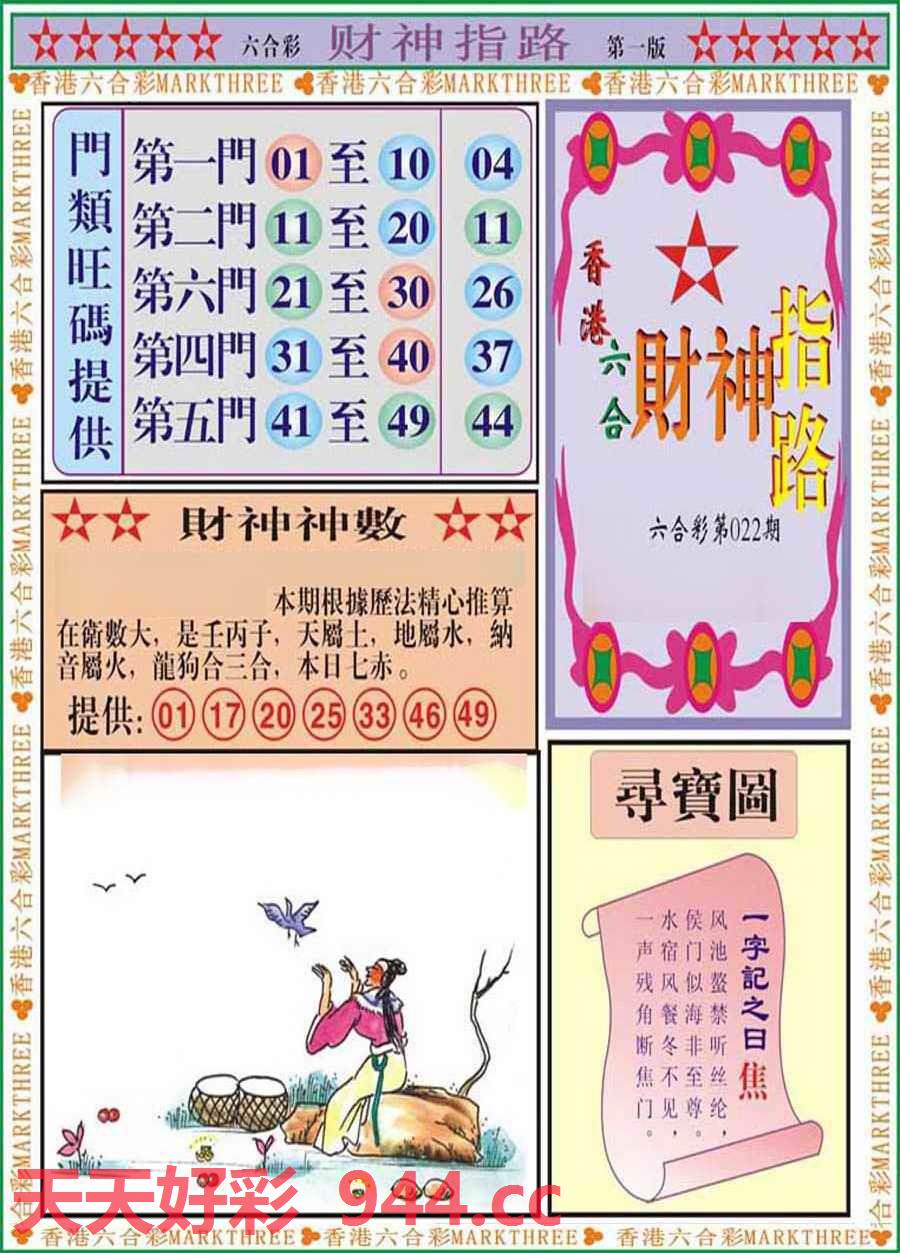 六合彩 财神指路 第一版
香港六合彩MARKTHREE 香港六合彩MARKTHREE 香港六合彩MARKTHREE
香港六合彩MARKTHREE
香港六合彩MARKTHREE
香港六合彩MARKTHREE
香港六合彩MARKTHREE
門類旺碼提供
第一門 01 至 10 04
第二門 11 至 20 11
第六門 21 至 30 26
第四門 31 至 40 37
第五門 41 至 49 44
香港六合
財神指路
六合彩第022期
財神神數
本期根據歷法精心推算
在衛數大，是壬丙子，天屬土，地屬水，納
音屬火，龍狗合三合，本日七赤。
提供: 01 17 20 25 33 46 49
尋寶圖
一字記之曰 焦
风池螯禁听丝纶，
侯门似海非至尊。
水宿风餐冬不见，
一声残角断焦门。
天天好彩 944.cc
香港六合彩MARKTHREE 香港六合彩MARKTHREE 香港六合彩MARKTHREE